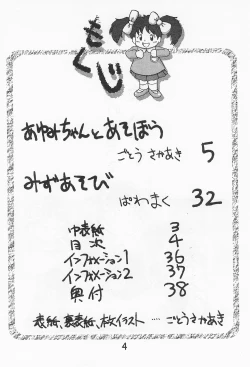 もくじ
あゆみちゃんとあそぼう
ごとう さかあき 5
みずあそび
ぱわまく 32
中表紙 3
目次 4
インフォメーション1 36
インフォメーション2 37
奥付 38
表紙、裏表紙、本文イラスト…… ごとうさかあき
4